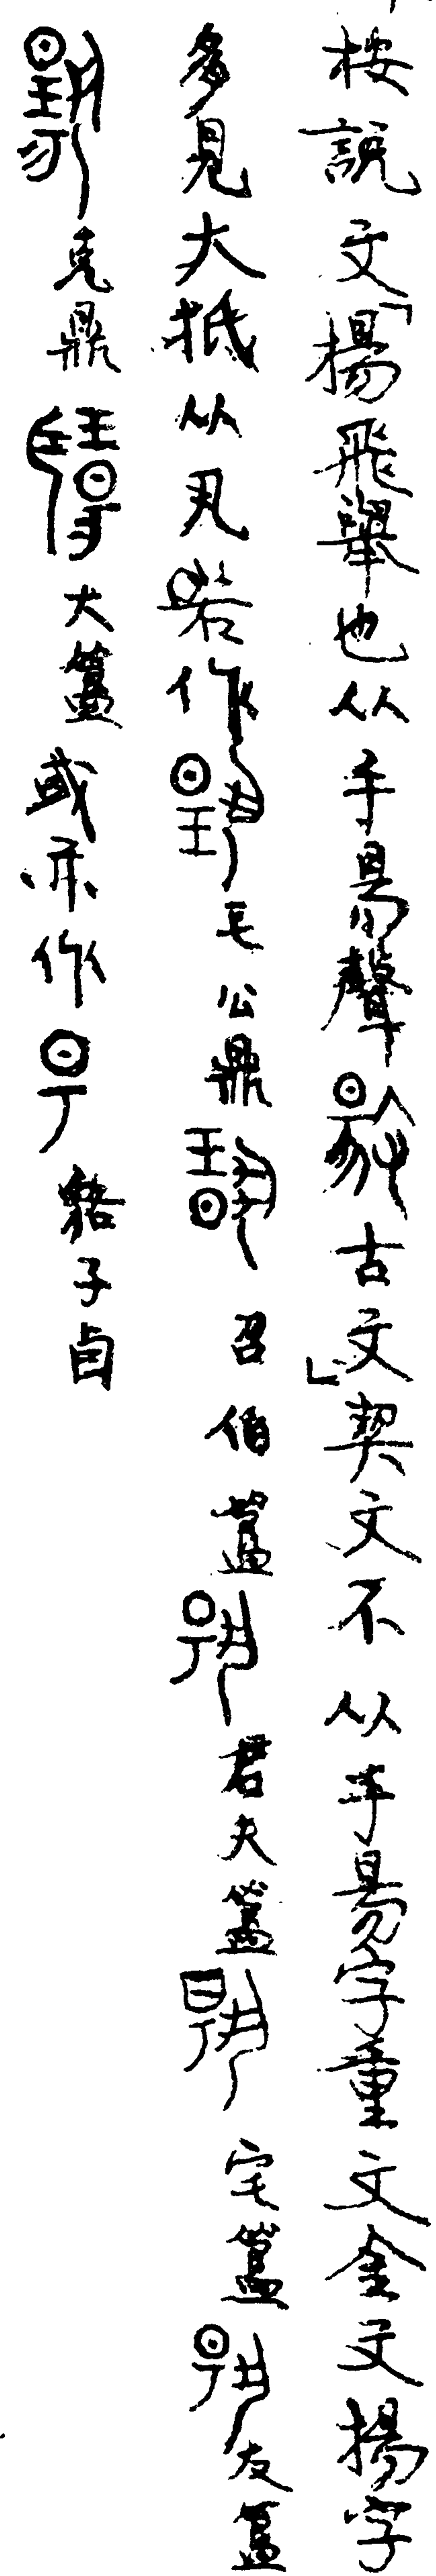 按說文「揚飛舉也从手昜聲古文」契文不从手昜字重文金文揚字
多見大抵从丮若作毛公鼎召伯簋君夫簋宅簋友簋
克鼎大簋或亦作貉子卣